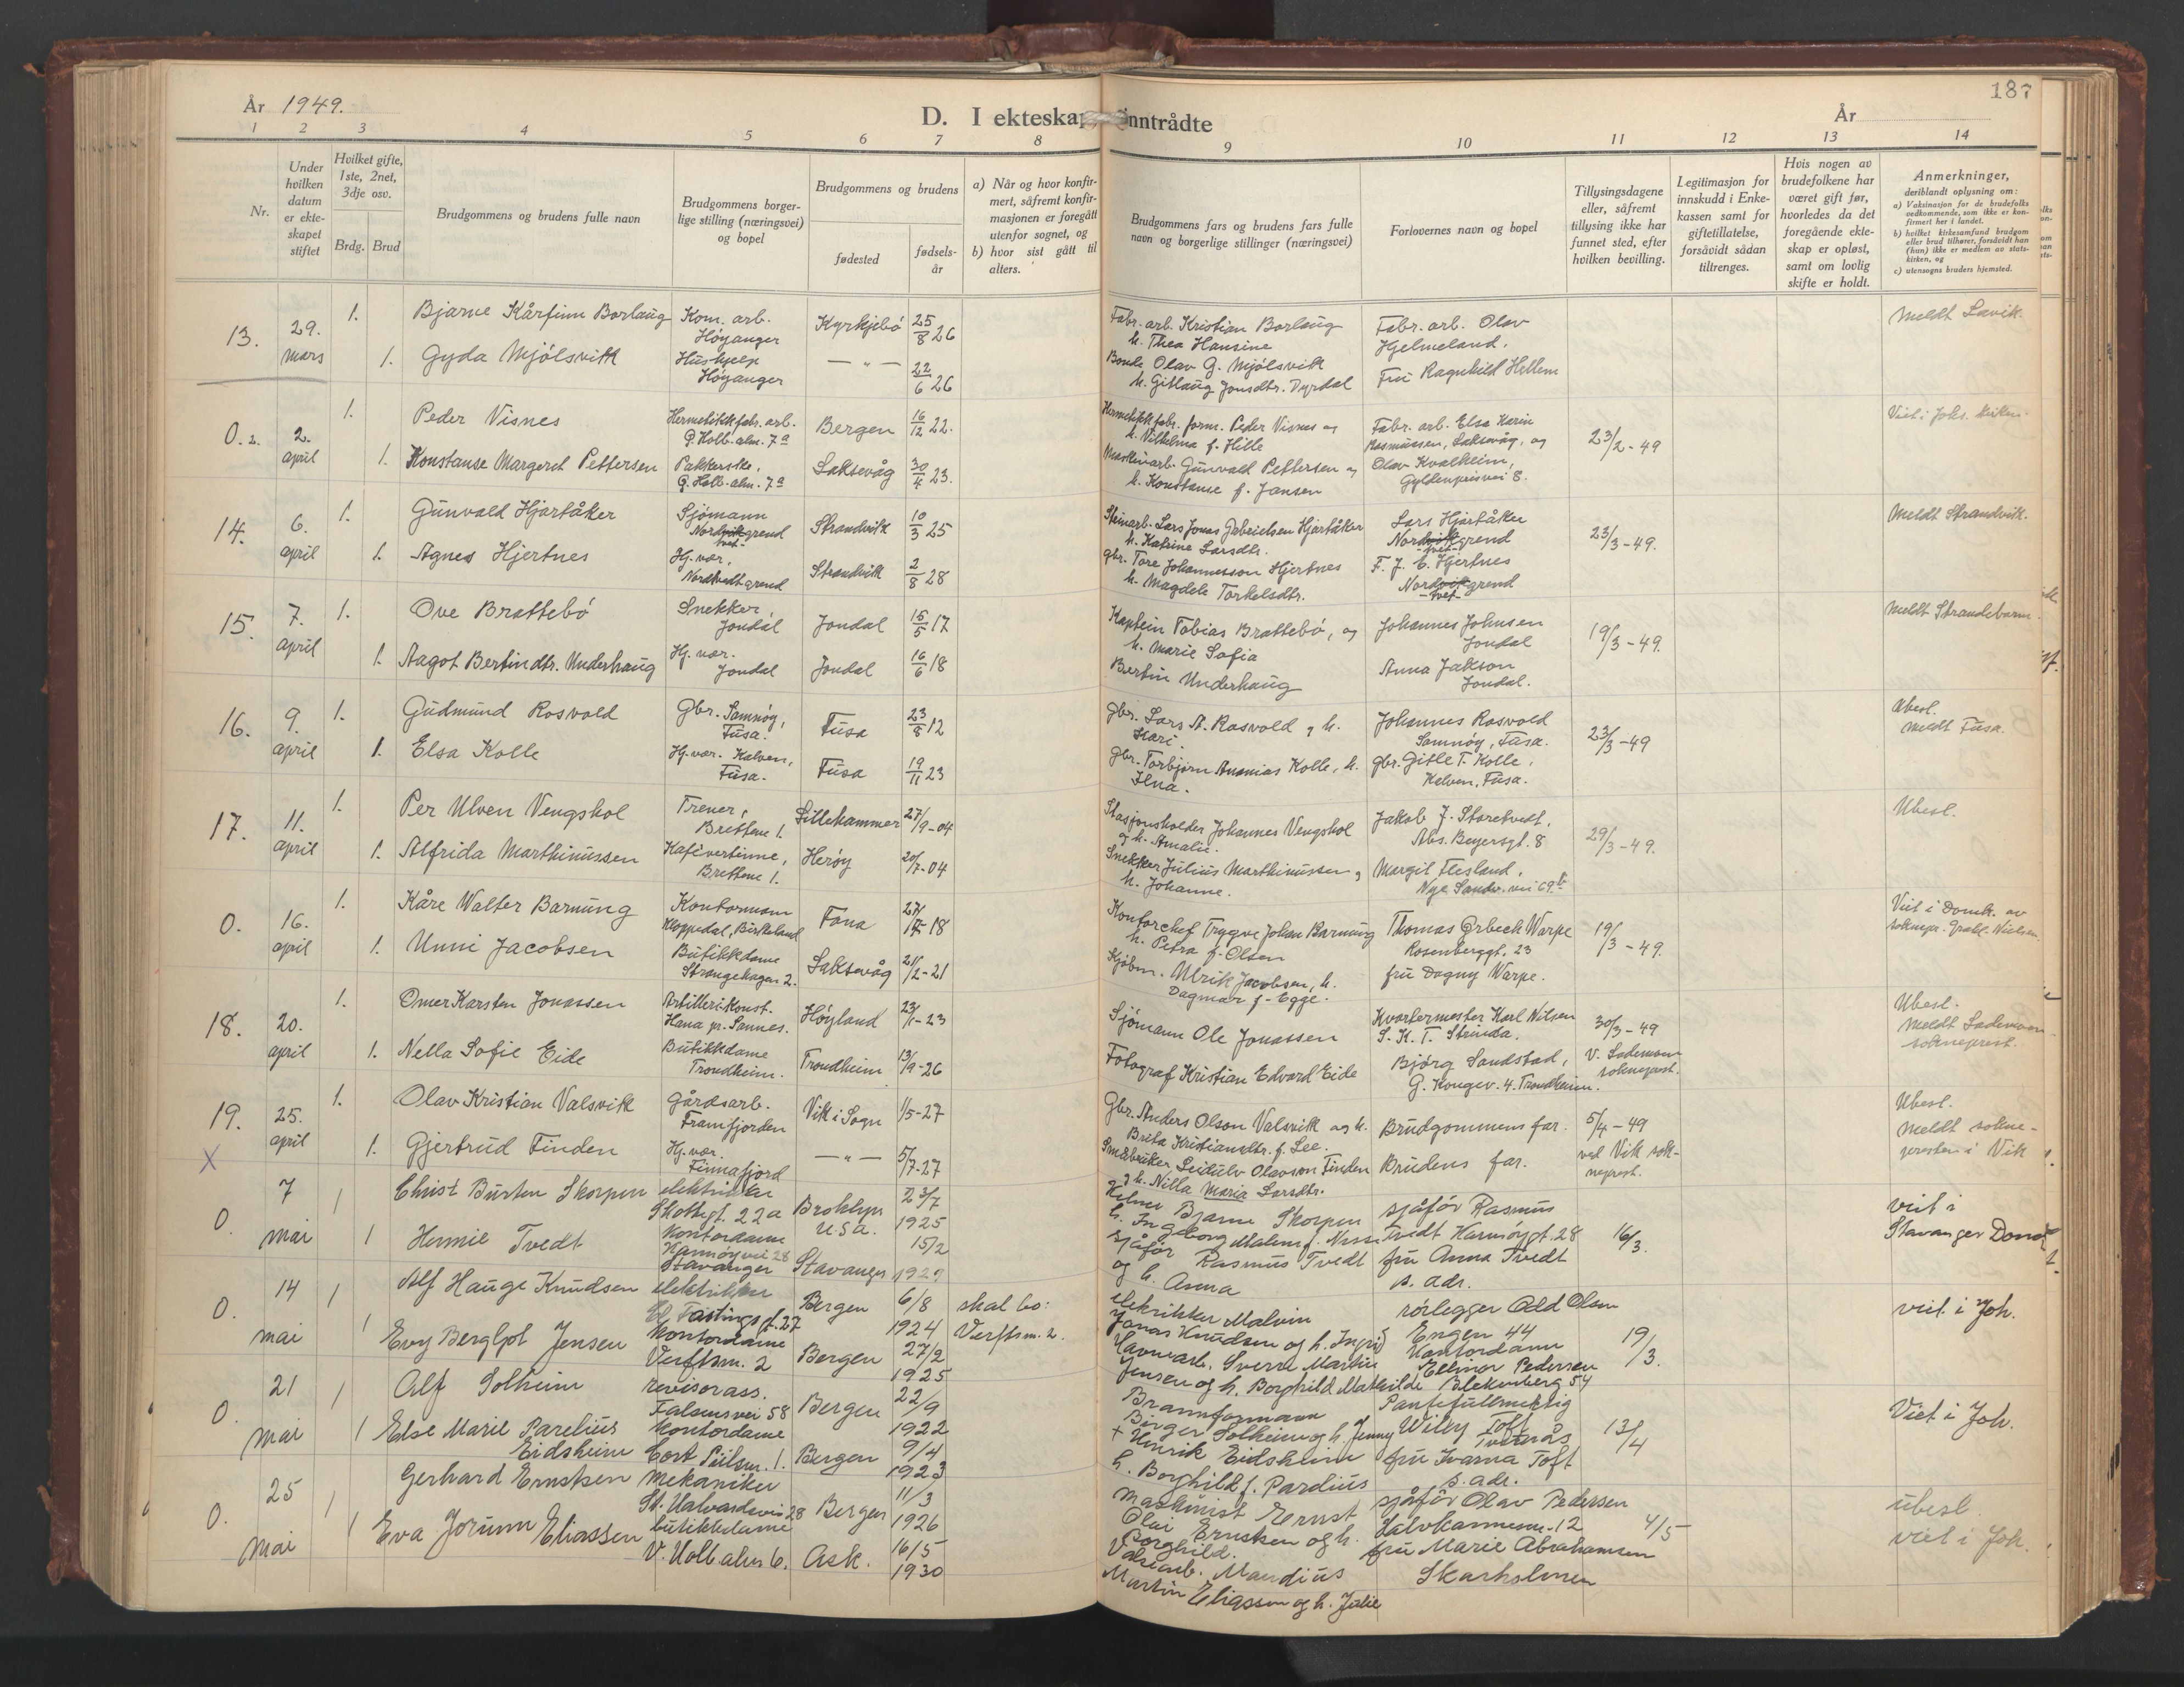 187
År 1949.
D. I ekteskap inntrådte
År
1 2 3 4 5 6 7 8 9 10 11 12 13 14
Nr.
Under hvilken datum er ekte-skapet stiftet
Hvilket gifte, 1ste, 2net, 3dje osv.
Brdg. Brud
Brudgommens og brudens fulle navn
Brudgommens borger-lige stilling (næringsvei) og bopel
Brudgommens og brudens
fødested
fødsels-år
a) Når og hvor konfir-mert, såfremt konfir-masjonen er foregått utenfor sognet, og
b) hvor sist gått til alters.
Brudgommens fars og brudens fars fulle navn og borgerlige stillinger (næringsvei)
Forlovernes navn og bopel
Tillysingsdagene eller, såfremt tillysing ikke har funnet sted, efter hvilken bevilling.
Legitimasjon for innskudd i Enke-kassen samt for giftetillatelse, forsåvidt sådan tiltrenges.
Hvis nogen av brudefolkene har været gift før, hvorledes da det foregående ekte-skap er opløst, samt om lovlig skifte er holdt.
Anmerkninger,
deriblandt oplysning om:
a) Vaksinasjon for de brudefolks vedkommende, som ikke er kon-firmert her i landet.
b) hvilket kirkesamfund brudgom eller brud tilhører, forsåvidt han (hun) ikke er medlem av stats-kirken, og
c) utensogns bruders hjemsted.
13. 29. mars
1. Bjarne Kårfinn Borlaug Kom. arb. Høyanger Kyrkjebø 25/8 26
Fabr. arb. Kristian Borlaug h. Thea Hansine
Fabr. arb. Olav Hjelmeland.
Meldt Lavik.
1. Gyda Mjølsvik Hushjelp Høyanger — " — 22/6 26
Bonde Olav G. Mjølsvik h. Gitlaug Jonsdtr. Dyrdal
Fru Ragnhild Hellem
0. 2. 2. april
1. Peder Visnes Hermetikkfabr. arb. G. Holb. alm. 7a Bergen 16/12 22.
Hermetikkfabr. form. Peder Visnes og h. Vilhelma f. Hille
Fabr. arb. Elsa Karin Rasmussen, Laksevåg, og
23/2 - 49
Viet i Johs. kirken.
1. Konstanse Margret Pettersen Pakkerske, G. Holb. alm. 7a Laksevåg 30/4 23.
Maskinarb. Gunvald Pettersen og h. Konstanse f. Jansen
Olav Kvalheim, Gyldenprisvei 8.
14. 6. april
1. Gunvald Hjartåker Sjömann Nordtvetgrend Strandvik 10/3 25
Steinarb. Lars Jonas Gabrielsen Hjartåker h. Katrine Larsdtr.
Lars Hjartåker Nordtvetgrend
23/3 - 49.
Meldt Strandvik.
1. Agnes Hjertnes Hj. vær. Nordtvedtgrend Strandvik 2/8 28
gbr. Tore Johannesson Hjertnes h. Magdele Torkelsdtr.
F. J. C. Hjertnes Nordtvetgrend
15. 7. april
1. Ove Brattebö Snekker, Jondal Jondal 15/5 17
Kaptein Tobias Brattebö, og h. Marie Sofia
Johannes Johnsen Jondal
19/3 - 49.
Meldt Strandebarm.
1. Aagot Bertindtr. Underhaug Hj. vær. Jondal Jondal 16/6 18
Bertin Underhaug
Anna Jakson Jondal.
16. 9. april
1. Gudmund Rosvold Gbr. Samnøy, Fusa. Fusa 23/8 12
gbr. Lars A. Rosvold og h. Kari.
Johannes Rosvold Samnøy, Fusa.
23/3 - 49
Ubesl. meldt Fusa.
1. Elsa Kolle Hj. vær. Helven, Fusa. Fusa 19/11 23
gbr. Torbjørn Ananias Kolle, h. Ilna.
gbr. Gitle T. Kolle, Helven, Fusa.
17. 11. april
1. Per Ulven Vengshol Trener, Brettene 1. Lillehammer 27/9 - 04
Stasjonsholder Johannes Vengshol og h. Amalie.
Jakob J. Storetvedt. Abs. Beyersgt. 8
29/3 - 49.
Ubesl.
1. Alfrida Marthinussen Kafévertinne, Brettene 1. Herøy 20/7 - 04
Snekker Julius Marthinussen, h. Johanne.
Margit Flesland, Nye Sandv. vei 69 b
0. 16. april
1. Kåre Walter Barnung Kontormann Kloppedal, Birkeland Fana 27/12 - 18
Kontorchef Trygve Johan Barnung h. Petra f. Olsen
Thomas Ørbech Warpe Rosenberggt. 23
19/3 - 49.
Viet i Domk. av soknepr. Grahl-Nielsen
1. Unni Jacobsen Butikkdame Strangehagen 2. Laksevåg 21/2 - 21
Kjøbm. Ulrik Jacobsen, h. Dagmar f. Egge.
fru Dagny Warpe.
18. 20. april
1. Omer Karsten Jonassen Artillerikonst. Hana pr. Sannes. Høyland 23/1 - 23
Sjømann Ole Jonassen
Kvartermester Karl Nilsen S. K. T. Strinda.
30/3 - 49 v. Lademoen sokneprest.
Ubesl. meldt Lademoen sokneprest.
1. Nella Sofie Eide Butikkdame Trondheim. Trondheim 13/9 - 26
Fotograf Kristian Edvard Eide
Bjørg Sandstad, G. Kongev. 4. Trondheim.
19. 25. april X
1. Olav Kristian Valsvik Gårdsarb. Framfjorden Vik i Sogn 1/5 - 27
Gbr. Anders Olson Valsvik og h. Brita Kristiansdtr. f. Lee.
Brudgommens far.
5/4 - 49 ved Vik sokneprest.
Ubesl. meldt sokne-presten i Vik
1. Gjertrud Finden Hj. vær. Finnafjord — " — 5/7 - 27
Småbruker Leidulv Olavson Finden og h. Nilla Maria Larsdtr.
Brudens far.
0. 7 mai
1 Christ Burten Skorpen elektriker Skottegt. 22a Broklyn U.S.A. 23/7 1925
Kelner Bjarne Skorpen h. Ingeborg Malene f. Ness
sjåfør Rasmus Tvedt Karmøygt. 28
16/3.
viet i Stavanger Domk.
1 Hermie Tvedt Kontordame Karmøyvei 28 Stavanger Stavanger 15/2 1929
Sjåfør Rasmus Tvedt og h. Anna
fru Anna Tvedt s. adr.
0. 14 mai
1 Alf Hauge Knudsen elektriker Tastingsgt. 27 Bergen 6/8 1924 skal bo: Verftsm. 2.
elekrikker Malvin Jonas Knudsen og h. Ingrid
rörlegger Odd Olsen Engen 44
19/3.
viet i Joh.
1 Evy Bergljot Jensen Kontordame Verftsm. 2 Bergen 27/2 1925
Havnearb. Sverre Martin Jensen og h. Borghild Mathilde
Kontordame Ellinor Pedersen Blekenberg 54
0. 21 mai
1 Alf Solheim revisorass. Falsensvei 58 Bergen 22/9 1922
Brannformann Birger Solheim og h. Jenny
Pantefullmektig Willy Toft Tvetnås
13/4
Viet i Joh.
1 Else Marie Parelius Eidsheim Kontordame Cort Piilsm. 1. Bergen 9/4 1923
+ Henrik Eidsheim h. Borghild f. Parelius
fru Ivarna Toft s. adr.
0. 25 mai
1 Gerhard Ernstsen Mekaniker St. Halvardsvei 28 Bergen 11/3 1926
Maskinist Ernst Olai Ernstsen og h. Borghild.
sjåfør Olav Pedersen Halvkannesm. 12
4/5
ubesl. viet i Joh.
1 Eva Jorunn Eliassen butikkdame V. Holb alm 6. Ask. 16/5 1930
Mandius Martin Eliassen og h. Julie
fru Marie Abrahamsen Skarholmen